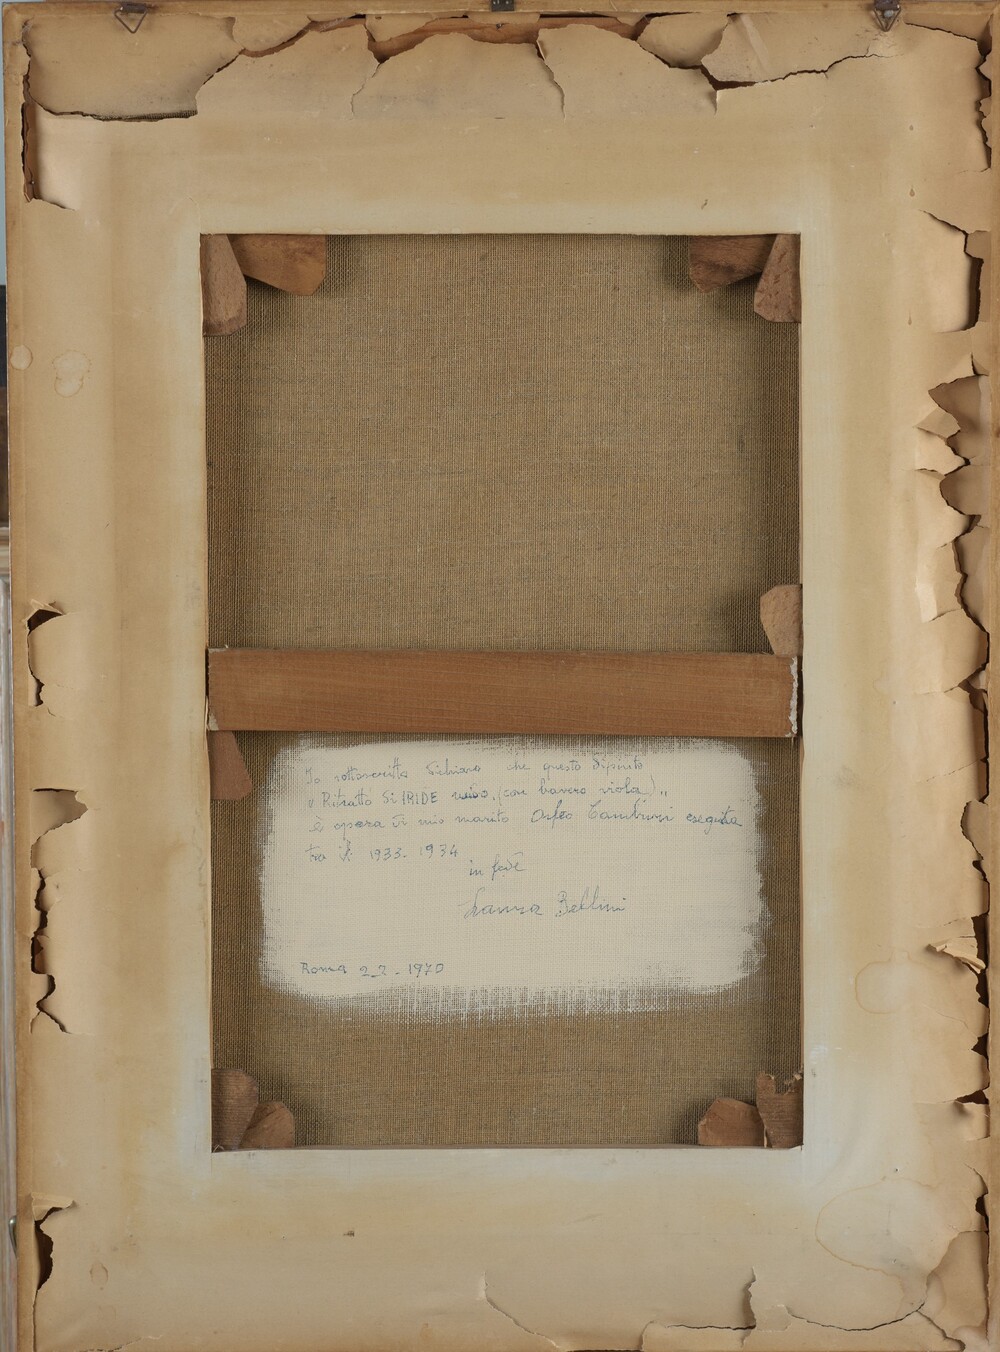 Io sottoscritta dichiaro che questo dipinto
"Ritratto di IRIDE (con bavero viola)"
è opera di mio marito Orfeo Tamburi eseguita
tra il 1933-1934
in fede
Bellini
Roma 2-2-1970